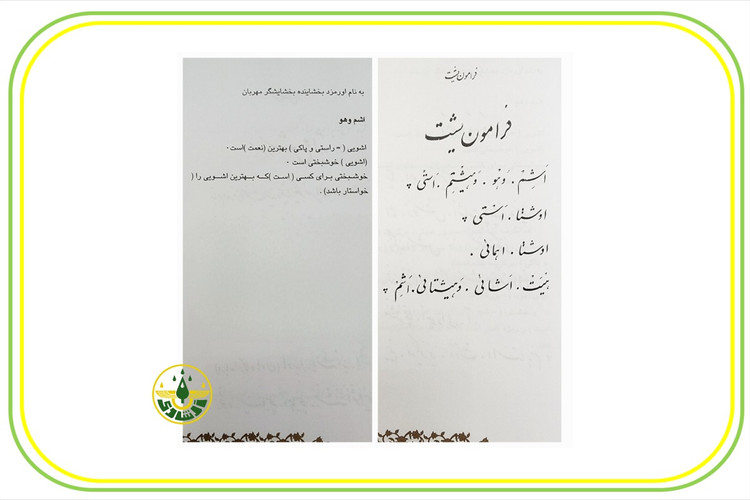 فرامون یشت
فرامون یشت
اَشِم . وُهو . وَهیشتِم . اَستی
اوشتا . اَستی
اوشتا . اهمائی .
هْیَت . اَشائی . وَهیشتائی . اَشِم
به نام اورمزد بخشاینده بخشایشگر مهربان
اشم وهو
اشویی ( = راستی و پاکی ) بهترین (نعمت )است۰
(اشویی ) خوشبختی است ۰
خوشبختی برای کسی ( است )که بهترین اشویی را (
خواستار باشد) .